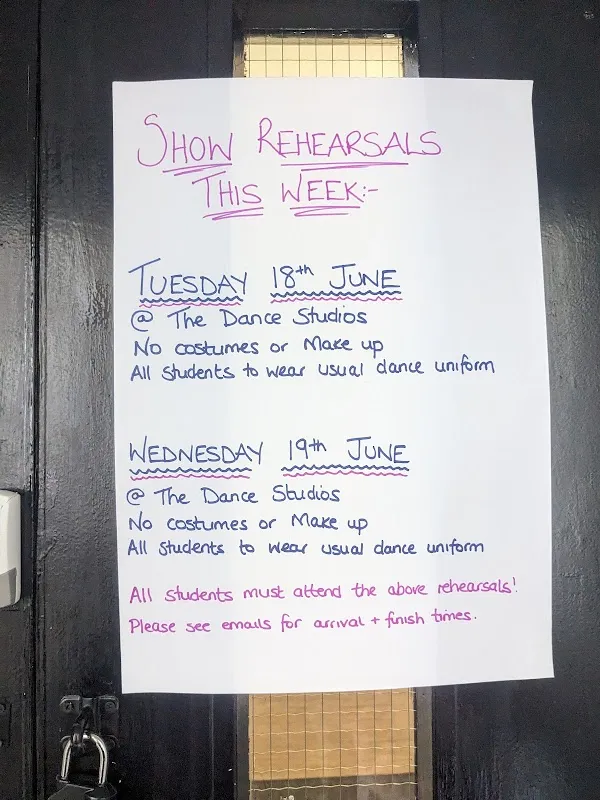 SHOW REHEARSALS
THIS WEEK:-
TUESDAY 18th JUNE
@ The Dance Studios
No costumes or Make up
All students to wear usual dance uniform
WEDNESDAY 19th JUNE
@ The Dance Studios
No costumes or Make up
All students to wear usual dance uniform
All students must attend the above rehearsals!
Please see emails for arrival + finish times.